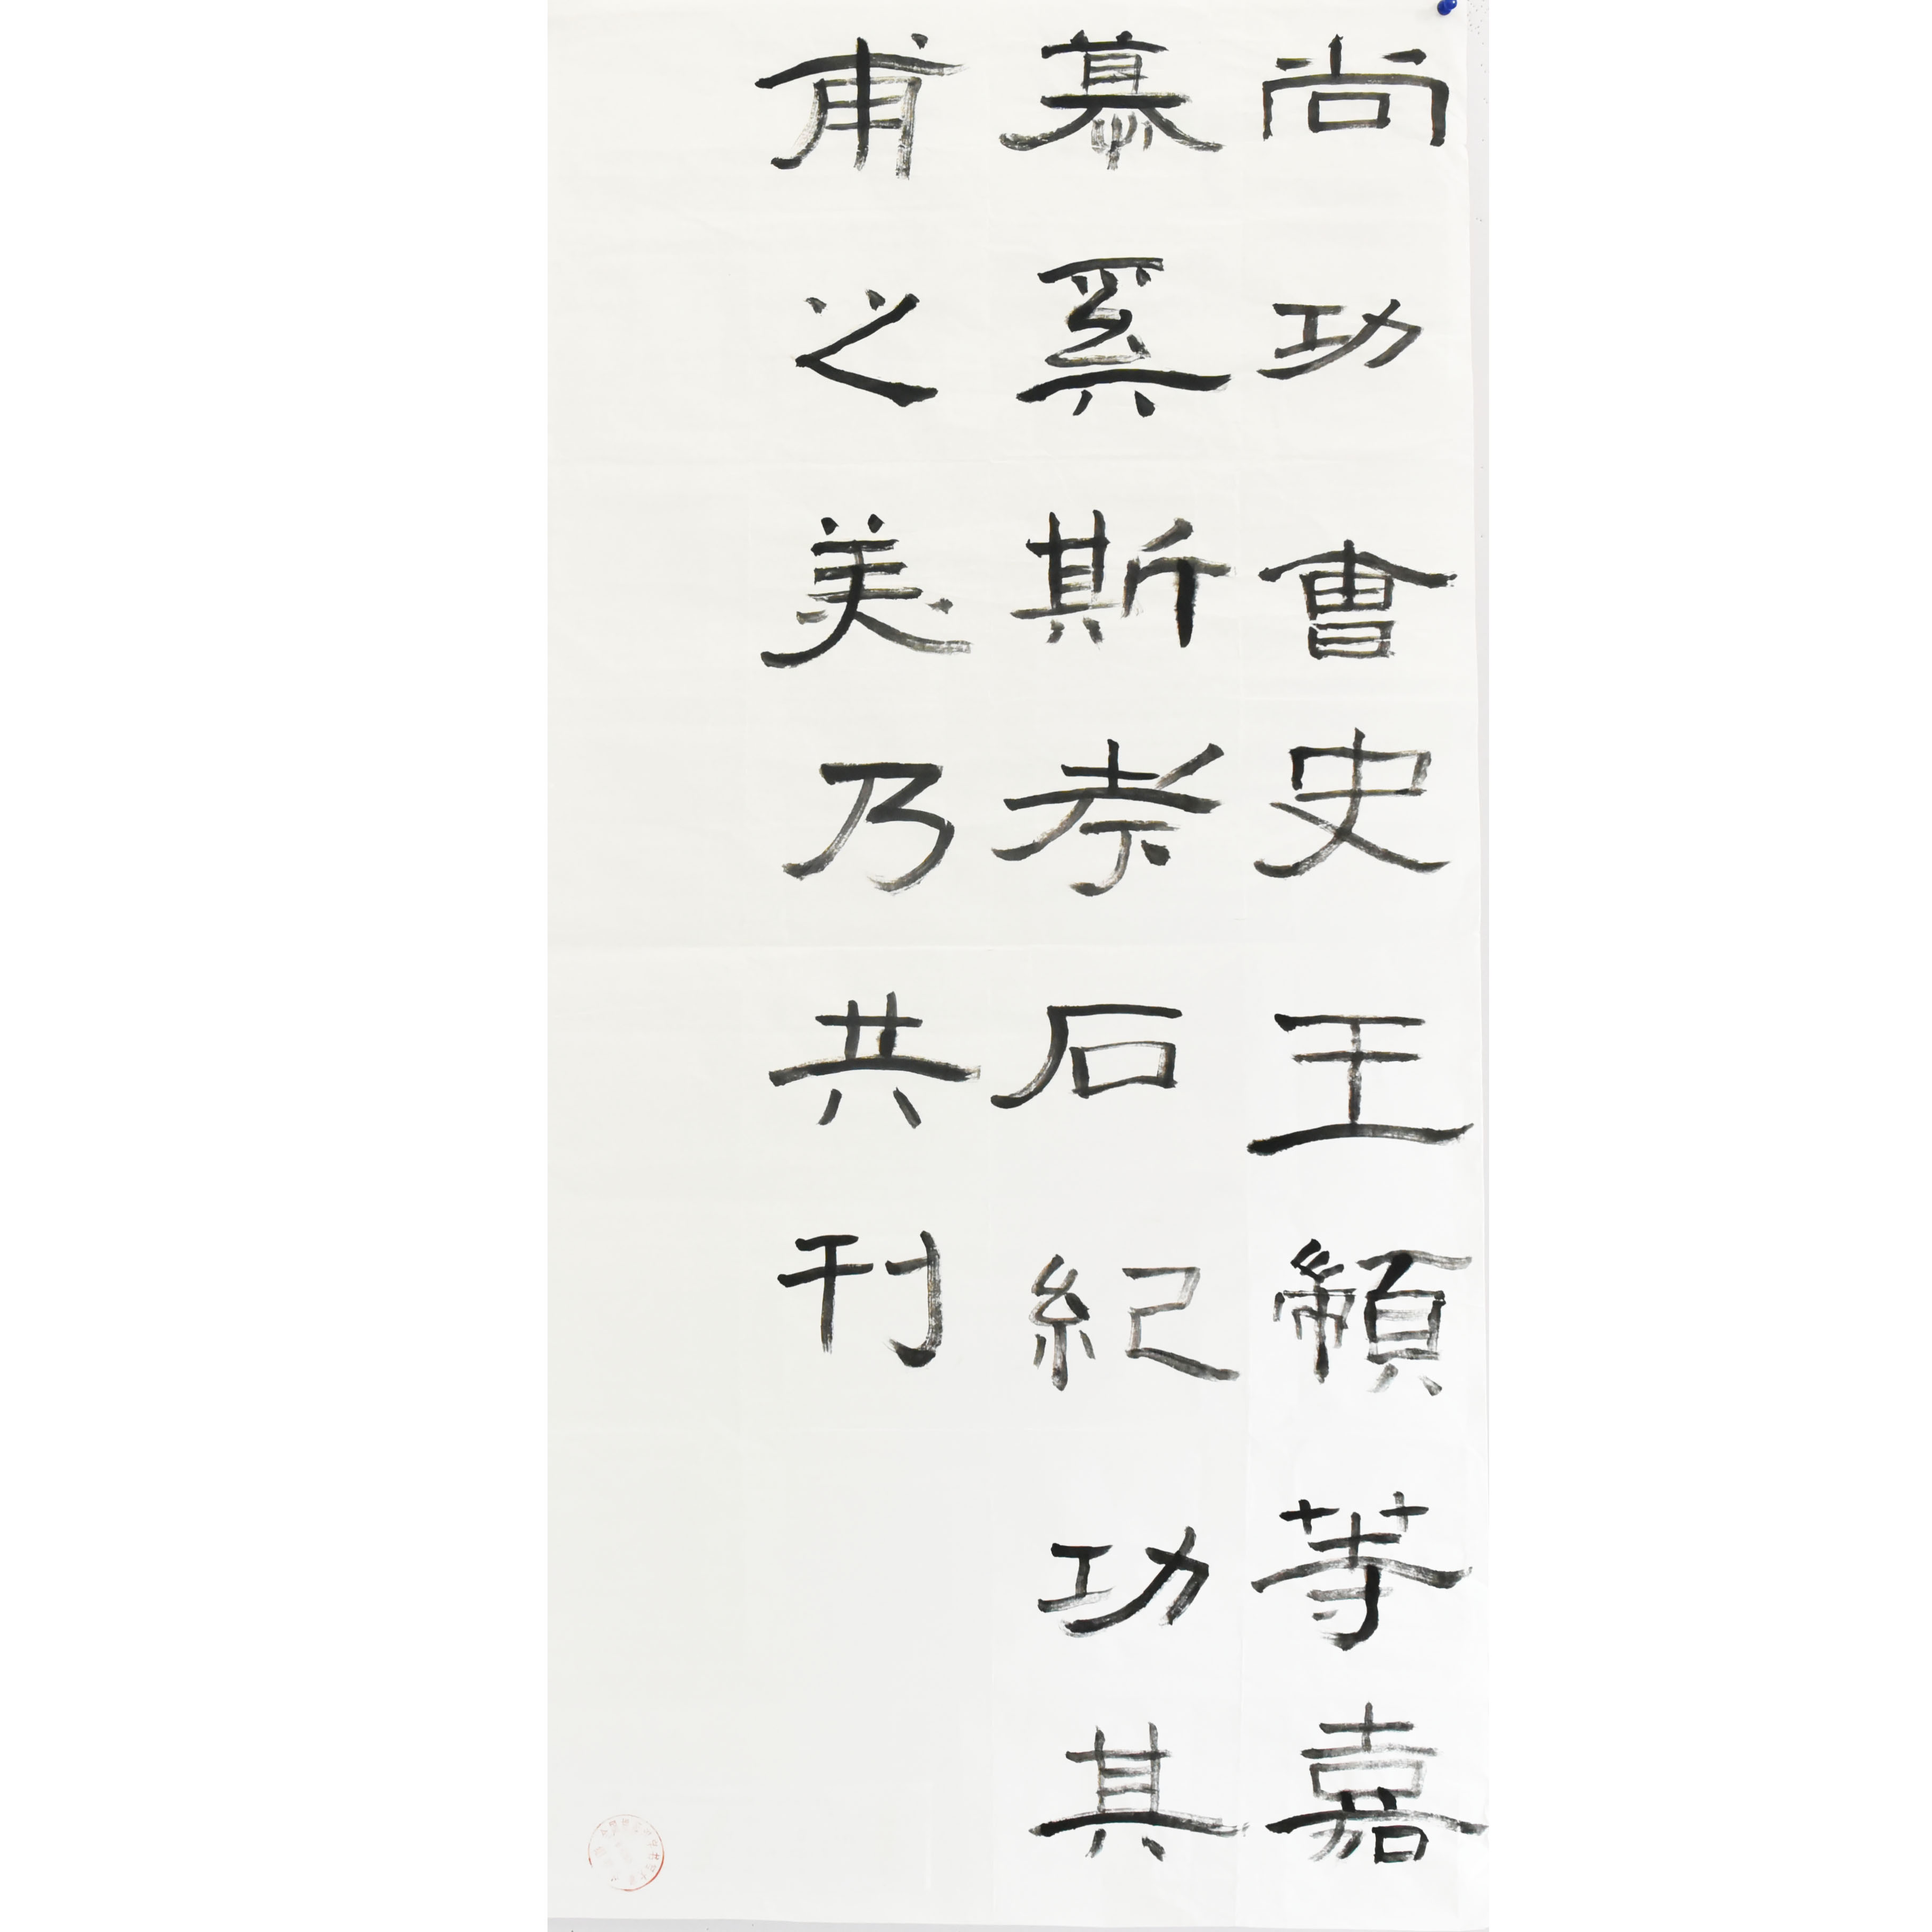 尚功曹史王顓等嘉
慕奚斯考甫之美乃
共刊石紀功其